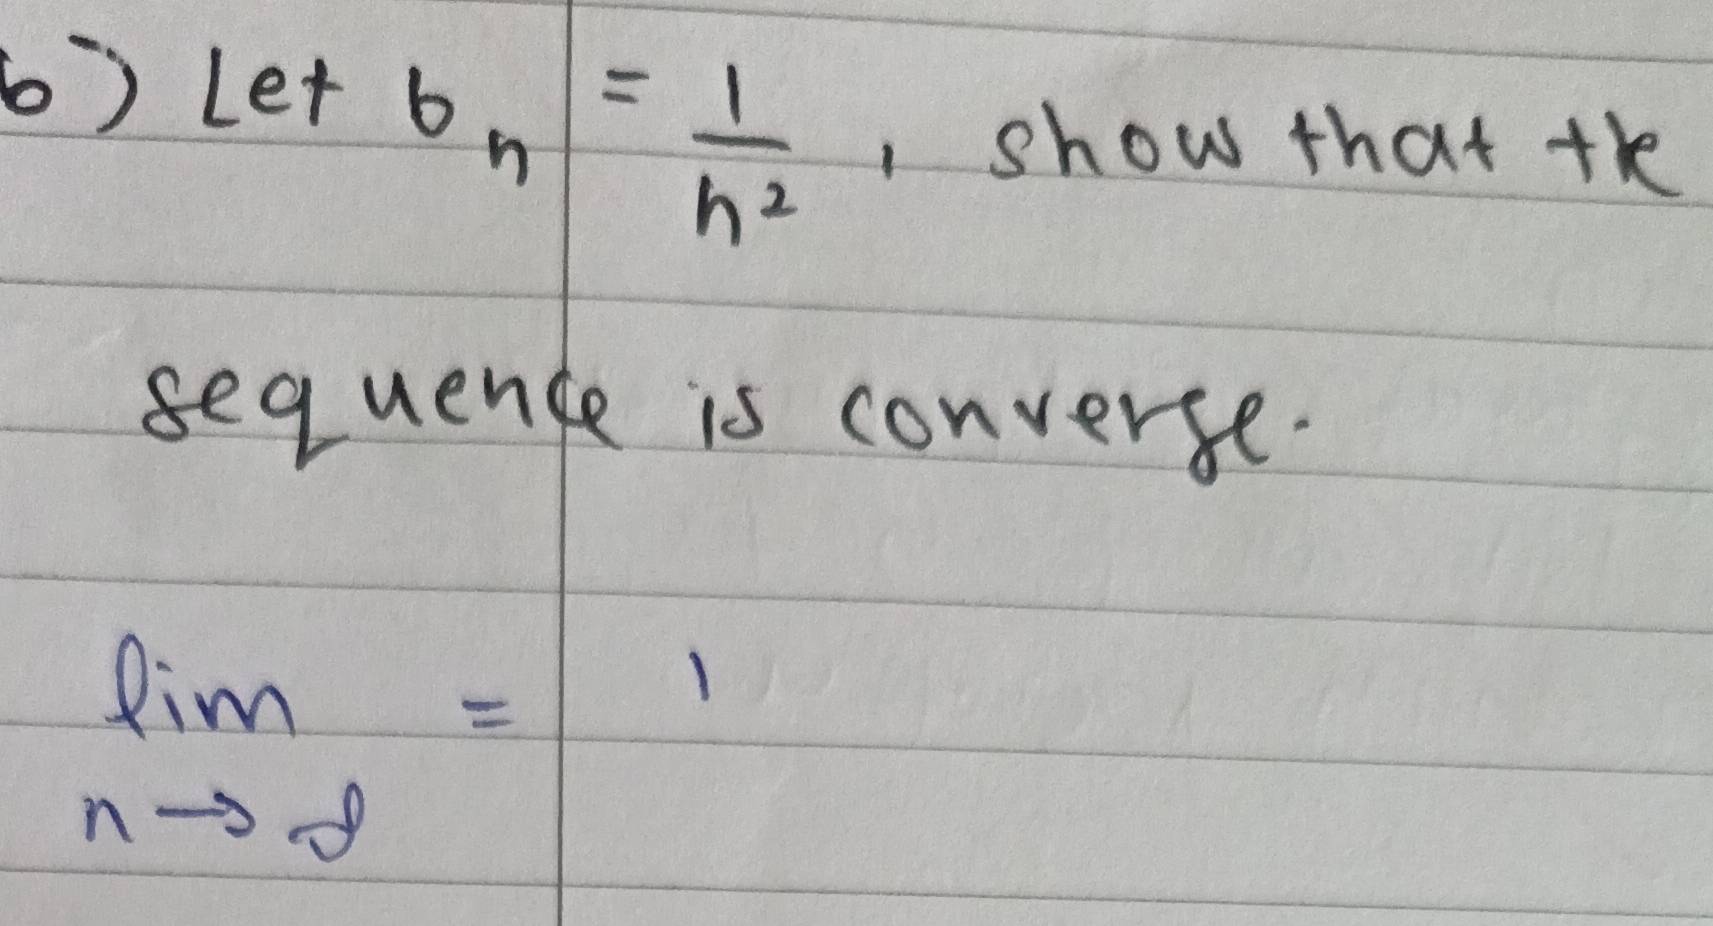 b) Let b_n = 1/n², show that the
sequence is converge.
lim = 1
n → ∞